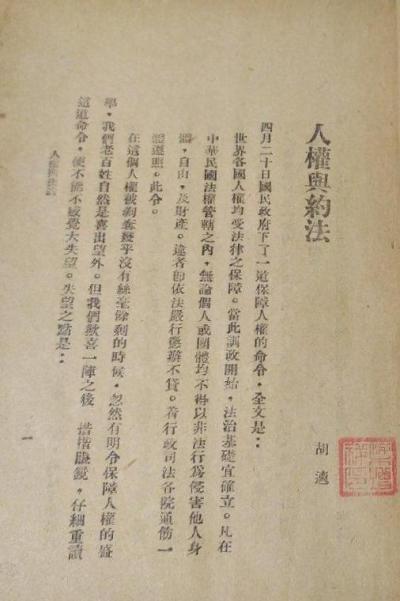 人權與約法
胡適
四月二十日國民政府下了一道保障人權的命令，全文是：
世界各國人權均受法律之保障。當此訓政開始，法治基礎宜確立。凡在
中華民國法權管轄之內，無論個人或團體均不得以非法行為侵害他人身
體，自由，及財產。違者即依法嚴行懲辦不貸。着行政司法各院通飭一
體遵照。此令。
在這個人權被剝奪幾乎沒有絲毫餘剩的時候，忽然有明令保障人權的盛
舉，我們老百姓自然是喜出望外。但我們歡喜一陣之後，揩揩眼鏡，仔細重讀
這道命令，便不能不感覺大失望。失望之點是：
人權與約法
一